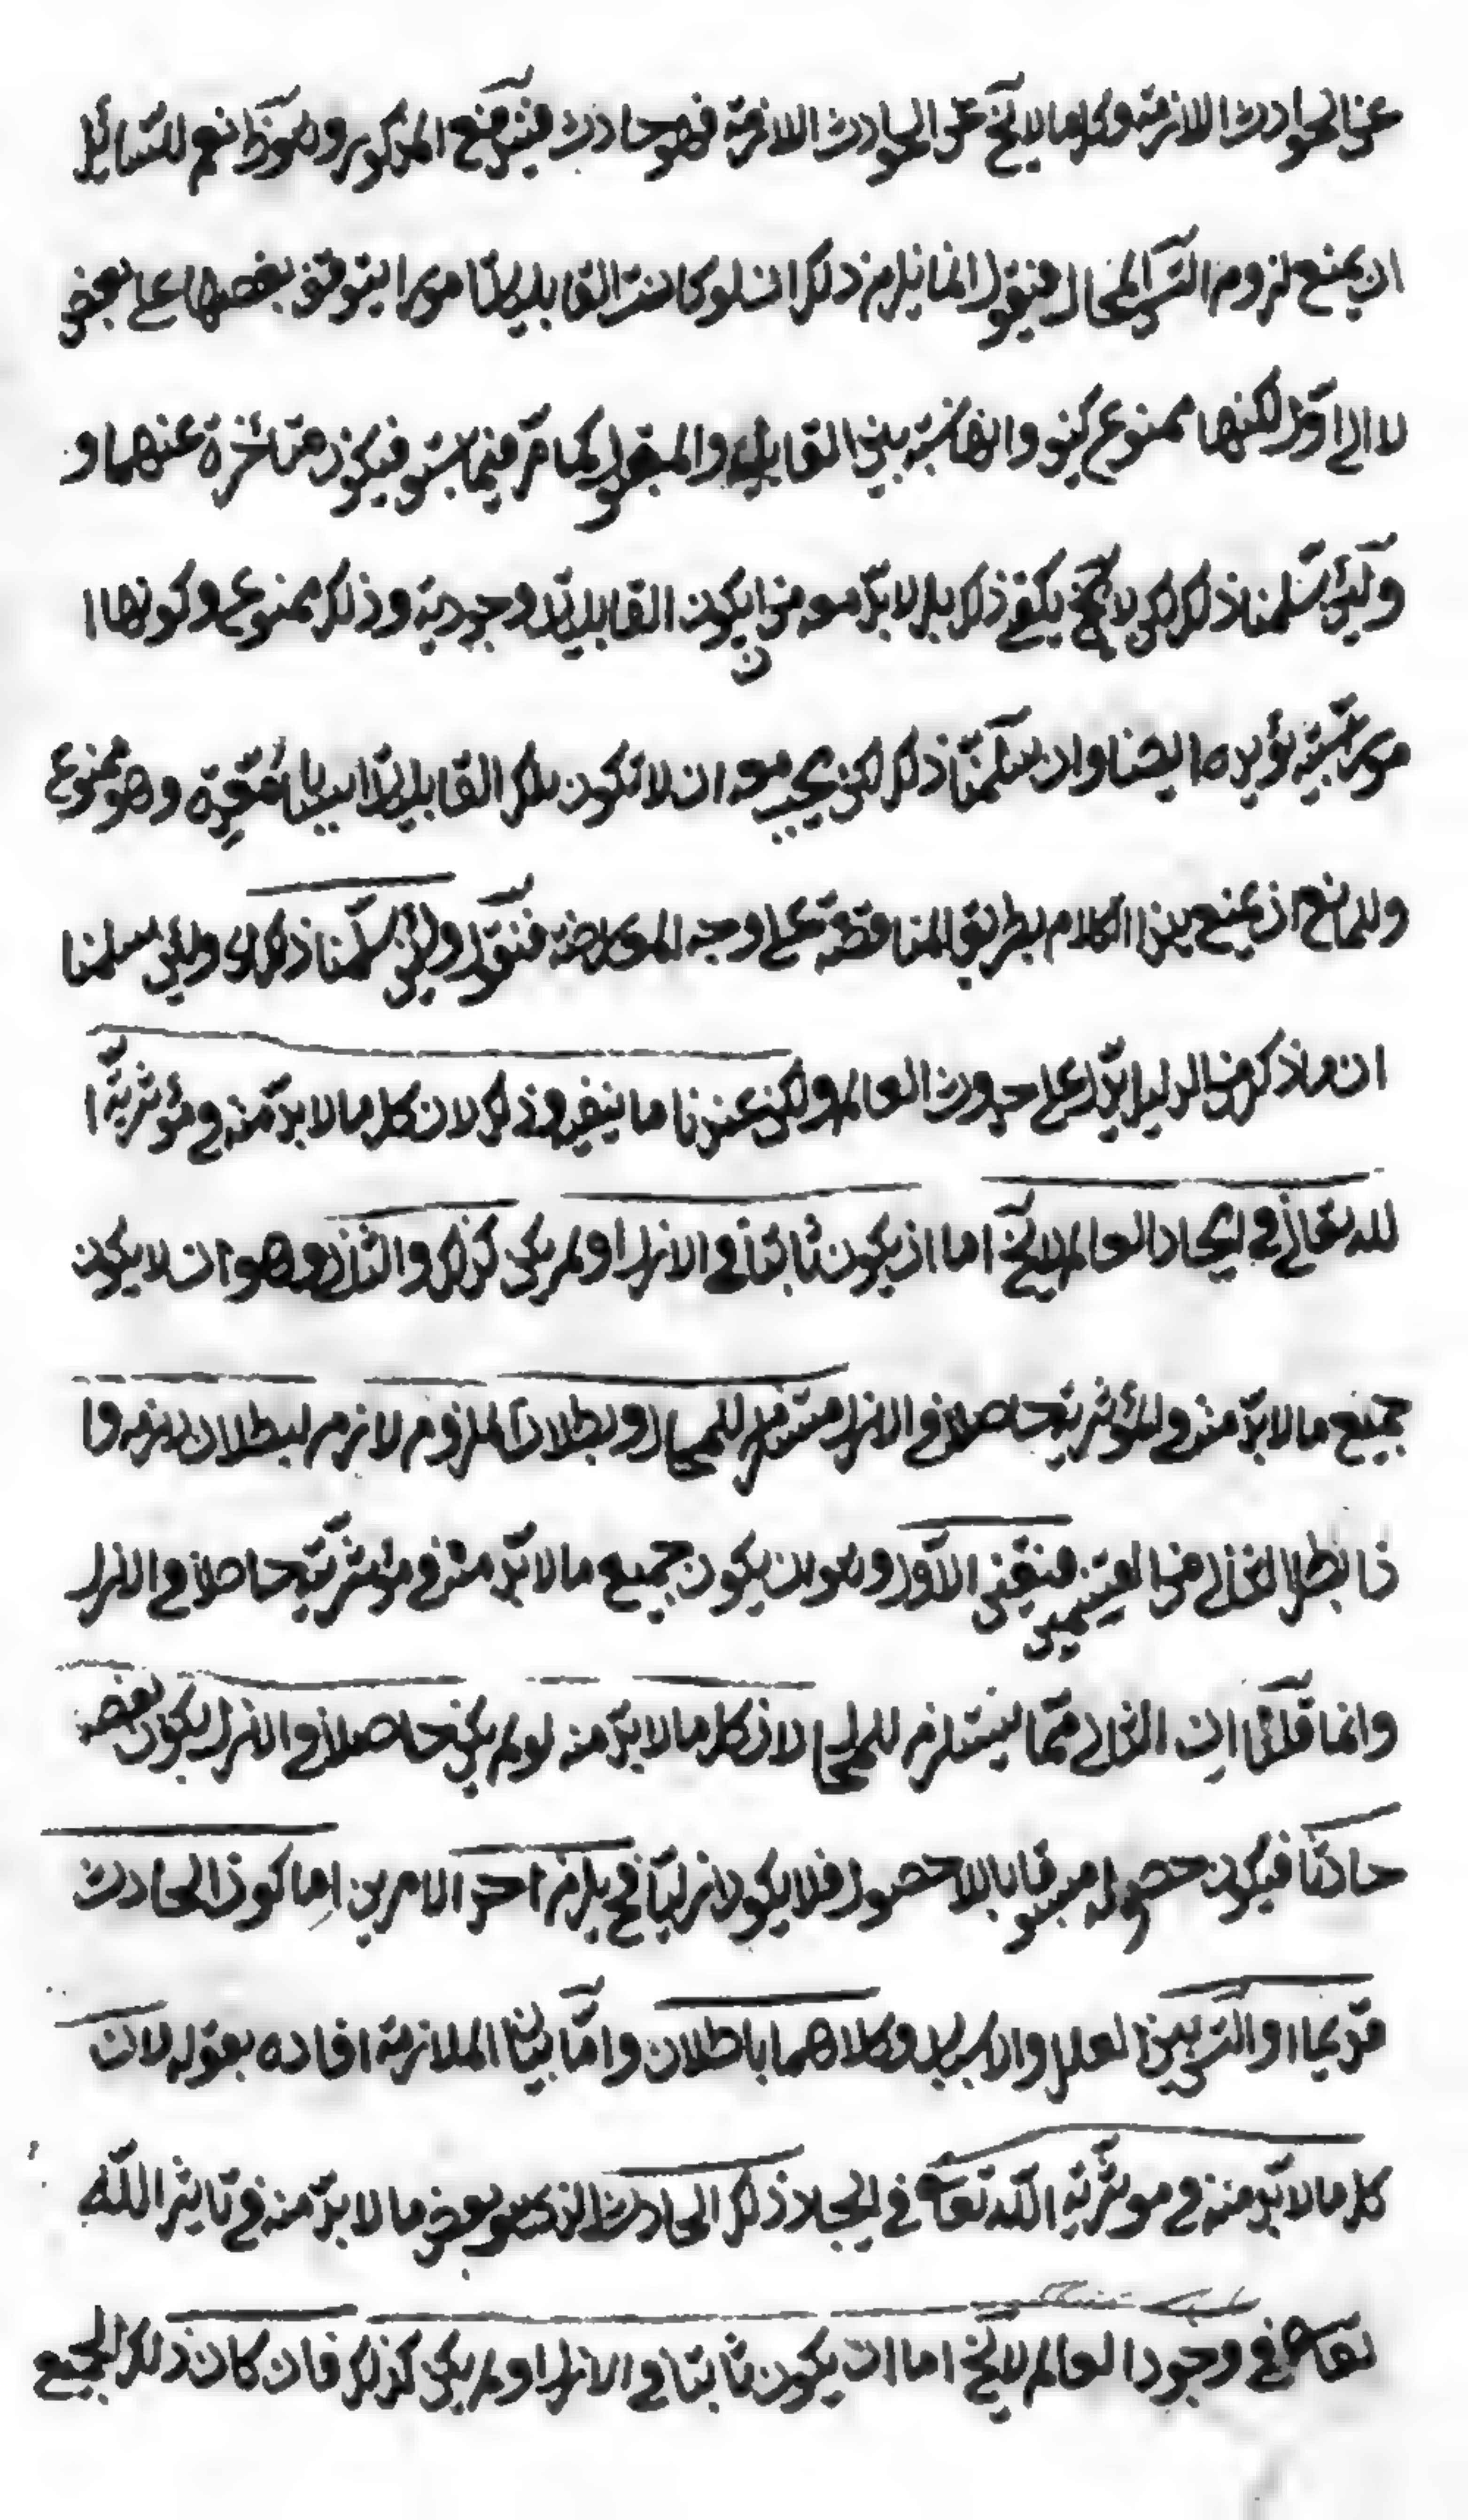 عن الحوادث الازمة وكل ما لا يخ عن الحوادث اللازمة فهو حادث فيتم المذكور وهو نعم للسائل
ان يمنع لزوم التس المحال فيقول انما يلزم ذلك ان لو كانت القابلية امورا يتوقف بعضها على بعض
لا الى اول لكنها ممنوع كيف وانها نسبة بين القابل والمقبول كما مر فيما سبق فيكون متأخرة عنهما و
ولئن سلمنا ذلك لكن لا يكفي ذلك بل لا بد معه من ان يكون القابلية وجودية وذلك ممنوع وكونها ا
مورا نسبية يؤيد ما يشنا وان سلمنا ذلك لكن يجب معه ان لا تكون تلك القابلية اسبابا معدة وهو ممنوع
وللمانع ان يمنع هذا الكلام بطريق المناقضة على وجه المعارضة فنقول ولئن سلمنا ذلك اى ولئن سلمنا
ان ما ذكر من الدليل يدل على حدوث العالم ولكن عندنا ما ينفي ذلك لان كل ما لا بد منه في مؤثرية ا
لله تعالى في ايجاد العالم لا يخ اما ان يكون ثابتا في الازل او لم يكن كذلك والثاني وهو ان لا يكون
جميع ما لا بد منه في المؤثرية حاصلا في الازل مستلزم للمحال وبطلان الملزوم لازم لبطلان لازمه وا
ذا بطل الثاني من القسمين فتعين الاول وهو ان يكون جميع ما لا بد منه في مؤثريته حاصلا في الازل
وانما قلنا ان الثاني مما يستلزم للمحال لان كل ما لا بد منه لو لم يكن حاصلا في الازل يكون بعضه
حادثا فيكون حصوله مسبوقا باللا حصول فلا يكون ازليا فح يلزم احد الامرين اما كون الحادث
قديما او التس بين العلل والاسباب وكلاهما باطلان واما بيان الملازمة افاده بقوله لان
كل ما لا بد منه في موثرية الله تعالى في ايجاد ذلك الحادث الذى هو بعض ما لا بد منه في تاثير الله
تعالى في وجود العالم لا يخ اما ان يكون ثابتا في الازل او لم يكن كذلك فان كان ذلك الجميع